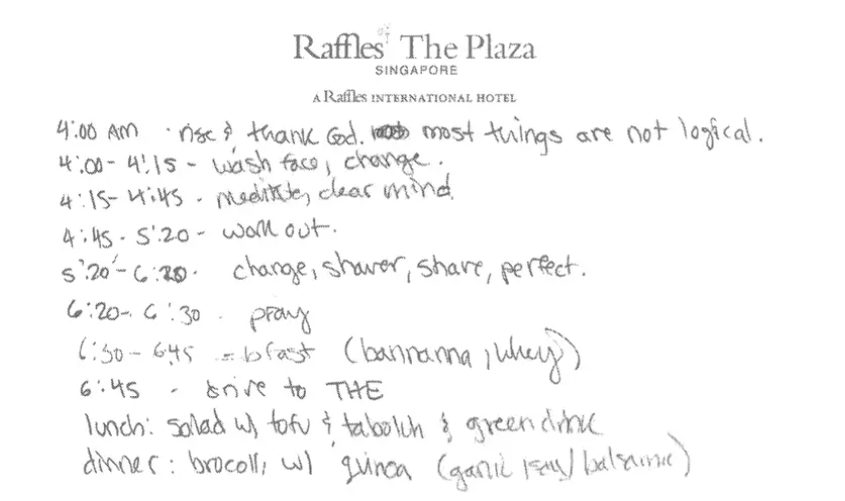 Raffles The Plaza
SINGAPORE
A Raffles INTERNATIONAL HOTEL
4:00 AM · rise & thank God. most things are not logical.
4:00 - 4:15 - wash face, change.
4:15 - 4:45 - meditate, clear mind
4:45 - 5:20 - work out.
5:20 - 6:20 - change, shower, shave, perfect.
6:20 - 6:30 - pray
6:30 - 6:45 = bfast (bannanna, whey)
6:45 - drive to THE
lunch: salad w/ tofu & tabolch & green drink
dinner: brocoli, w/ quinoa (garlic / balsamic)